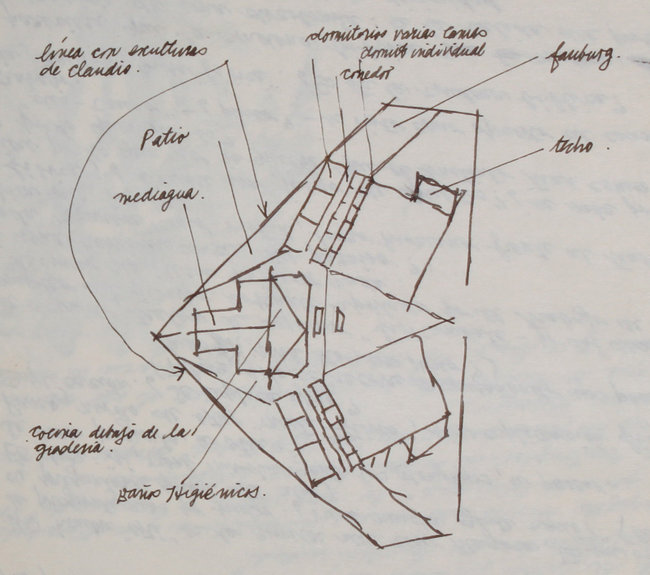 línea con esculturas
de Claudio.
dormitorios varias camas
dormit individual
comedor
fauburg.
Patio
techo.
mediagua.
cocina debajo de la
gradería.
Baños Higiénicos.